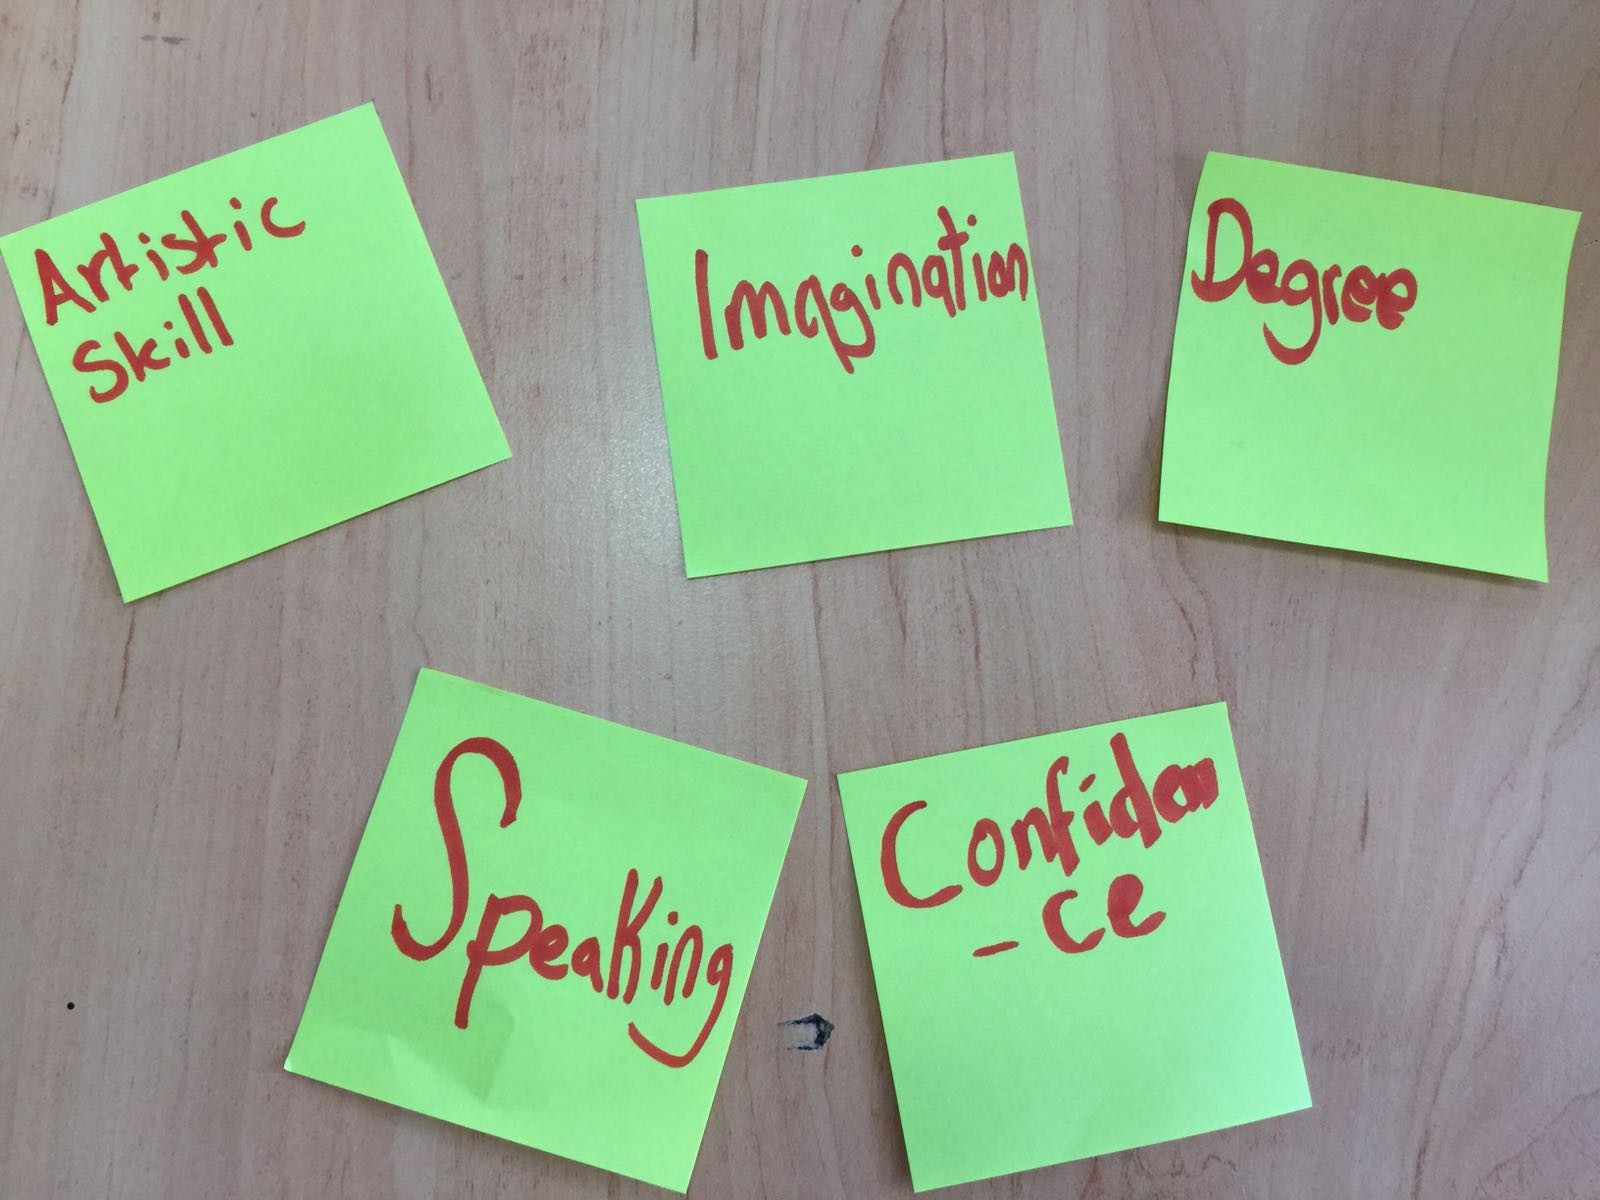 Artistic
Skill
Imagination
Degree
Speaking
Confiden
-ce